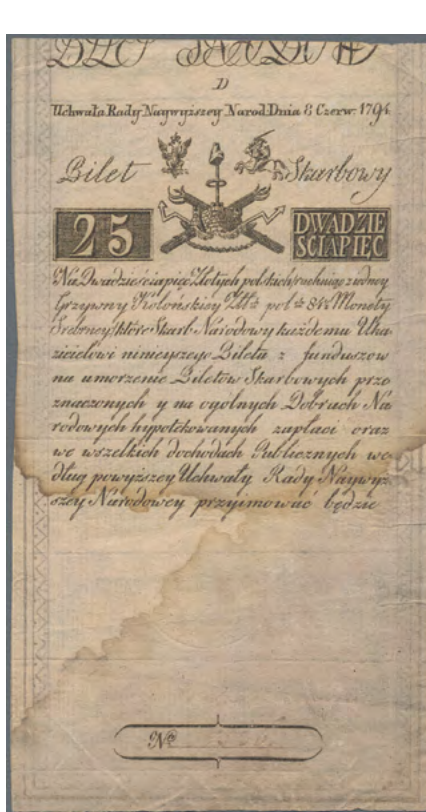 D
Uchwała Rady Naywyższey Narod: Dnia 8 Czerw: 1794
Bilet Skarbowy
25 DWADZIE
SCIAPIĘC
Na Dwadzieściapięć Złotych polskich rachuiąc z iedney
Grzywny Kolońskiey Zł: pol: 84½ Monety
Srebrney które Skarb Narodowy każdemu Uka-
zicielowi ninieyszego Biletu z funduszow
na umorzenie Biletow Skarbowych prze
znaczonych y na ogolnych Dobrach Na
rodowych hypotekowanych zapłaci oraz
we wszelkich dochodach Publicznych we-
dług powyższey Uchwały Rady Naywyż
szey Narodowey przyimować będzie
No